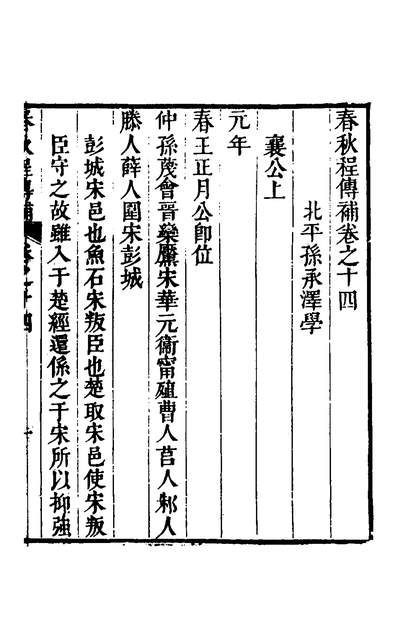 春秋程傳補卷之十四
北平孫承澤學
襄公上
元年
春王正月公卽位
仲孫蔑會晉欒黶宋華元衞甯殖曹人莒人邾人
滕人薛人圍宋彭城
彭城宋邑也魚石宋叛臣也楚取宋邑使宋叛
臣守之故雖入于楚經還係之于宋所以抑強
春秋程傳補
卷之十四
一